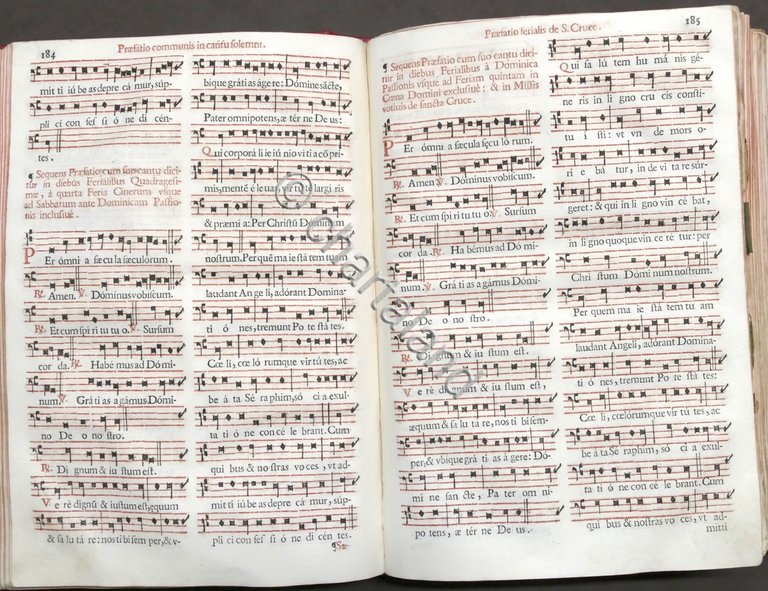 184
Præfatio communis in cantu solemni.
mit ti iú be as depre cá mur, súp-
pli ci con fes si ó ne di cén-
tes.
¶ Sequens Præfatio cum suo cantu dici
tur in diebus Ferialibus Quadragesi-
mæ, à quarta Feria Cinerum vsque
ad Sabbatum ante Dominicam Passio-
nis inclusiuè.
PEr ómni a sæcula sæculorum.
℟. Amen. ℣. Dóminus vobíscum.
℟. Et cum spi ri tu tu o. ℣. Sursum
cor da. ℟. Habé mus ad Dómi-
num. ℣. Grá ti as a gámus Dómi-
no De o no stro.
℟. Di gnum & iu stum est.
Ve rè dignū & iustum est, ęquum
& sa lu tá re: nos ti bi sem per, & v-
bique grá ti as á ge re: Dómine sácte,
Pater omnipotens, æ tér ne De us:
Qui corporá li ie iú nio vi ti a cō pri-
mis, mentē e leuas, largí ris
& præmi a: Per Christū Dóminum
nostrum. Per quē ma ie stá tem tuam
laudant An ge li, adórant Domina-
ti ó nes, tremunt Po te stá tes.
Cœ li, cœ ló rumque vir tú tes, ac
be á ta Sé raphim, só ci a exul-
ta ti ó ne con cé le brant. Cum
qui bus & no stras vo ces, vt ad-
mit ti iú be as depre cá mur, súp-
pli ci con fes si ó ne di cén tes.
¶Se-
185
Præfatio ferialis de S. Cruce.
¶ Sequens Præfatio cum suo cantu dici
tur in diebus Ferialibus à Dominica
Passionis vsque ad Feriam quintam in
Cœna Domini exclusiuè: & in Missis
votiuis de sancta Cruce.
PEr ómni a sæcula sęcu ló rum.
℟. Amen. ℣. Dóminus vobíscum.
℟. Et cum spi ri tu tu o. ℣. Sursum
cor da. ℟. Ha bémus ad Dó mi-
num. ℣. Grá ti as a gámus Dómi-
no De o no stro.
℟. Di gnum & iu stum est.
Ve rè dignū & iu stum est,
æquum & sa lu tá re, nos ti bi sem-
per, & vbique grá ti as á gere: Dó-
mi ne san cte, Pa ter om ní-
po tens, æ tér ne De us.
Qui sa lú tem hu má nis gé-
ne ris in li gno cru cis consti-
tu i sti: vt vn de mors o-
ri e bá tur, in de vi ta re súr-
geret: & qui in li gno vin cé bat,
in li gno quoque vin ce ré tur: per
Chri stum Dóminum nostrum.
Per quem ma ie stá tem tu am
laudant Angeli, adórant Domina-
ti ó nes, tremunt Po te stá tes:
Cœ li, cœlorumque vir tú tes, ac
be á ta Sé raphim, só ci a exul-
ta ti ó ne con cé le brant. Cum
qui bus & nostras vo ces, vt ad
mitti
© chartaland